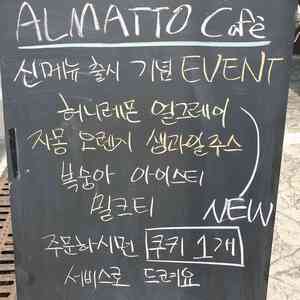 ALMATTO Cafè
신메뉴 출시 기념 EVENT
허니레몬 얼그레이
자몽 오렌지 생과일주스
복숭아 아이스티
밀크티
NEW
주문하시면 쿠키 1개
서비스로 드려요